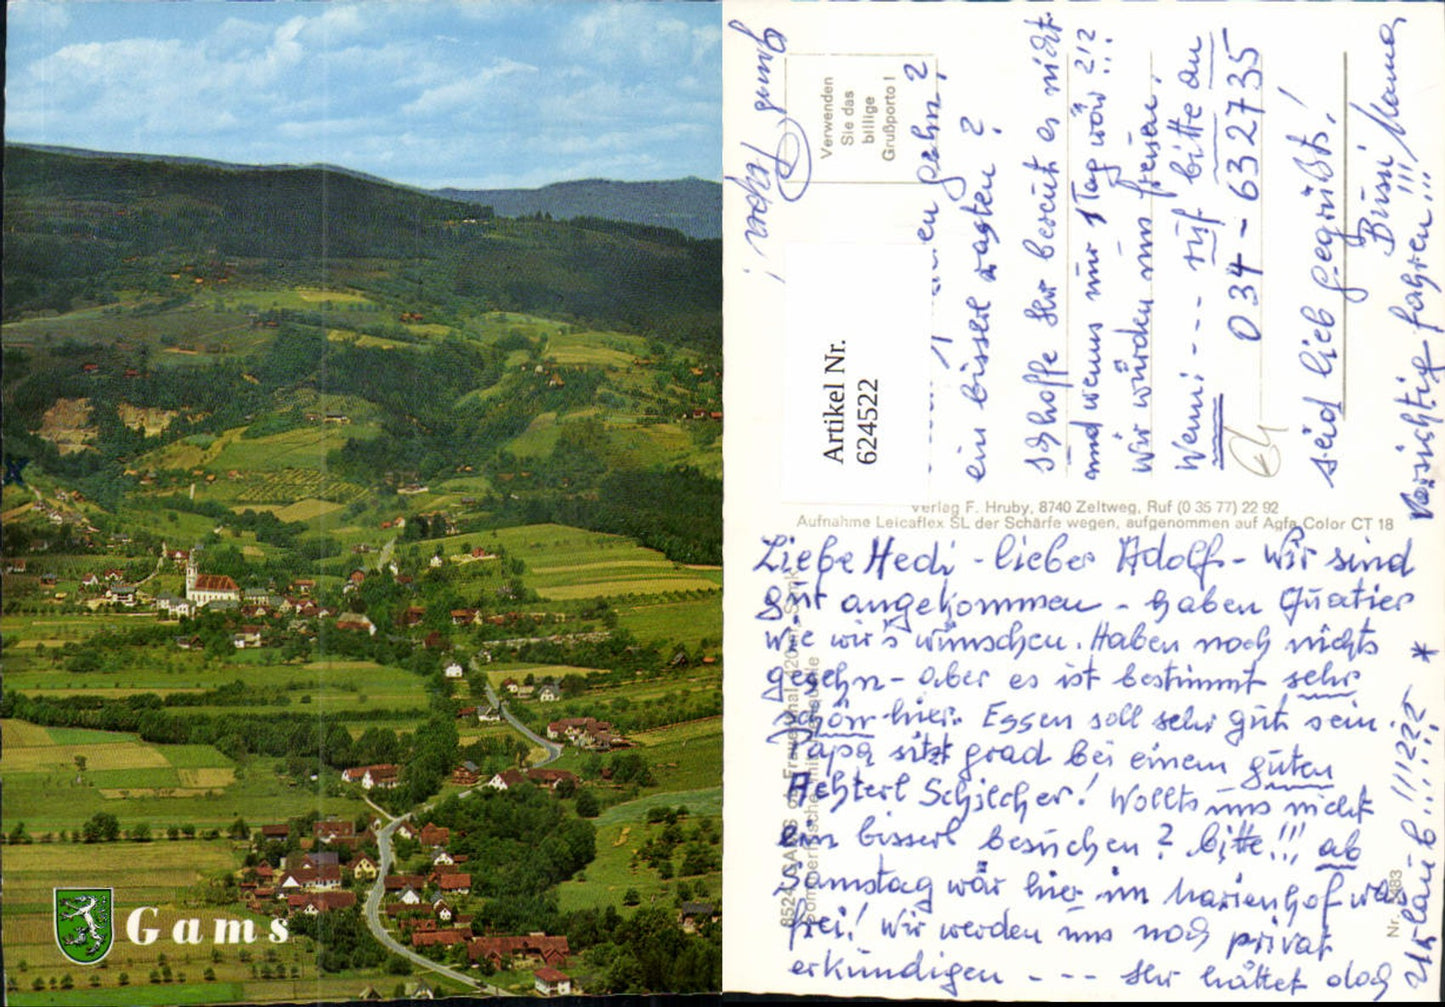 Gams
Liebe Hedi - lieber Adolf - Wir sind
gut angekommen - haben Quatier
wie wir's wünschen. Haben noch nichts
gesehn - aber es ist bestimmt sehr
schön hier. Essen soll sehr gut sein.
Papa sitzt grad bei einem guten
Achterl Schilcher! Wollts uns nicht
ein bisserl besuchen? bitte!!! ab
Samstag wär hier im Marienhof was
frei! Wir werden uns noch privat
erkundigen - - - Ihr hättet doch
Urlaub!!!
gehn?
ein bisserl rasten?
Ich hoffe Ihr bereut es nicht
und wenns nur 1 Tag wär
Wir würden uns freuen.
Wenn: - - - ruf bitte an
034-632735
seid lieb gegrüßt!
Bussi Mama
Vorsichtig fahren!!!
Verwenden
Sie das
billige
Grußporto!
Artikel Nr.
624522
Verlag F. Hruby, 8740 Zeltweg, Ruf (0 35 77) 22 92
Aufnahme Leicaflex SL der Schärfe wegen, aufgenommen auf Agfa Color CT 18